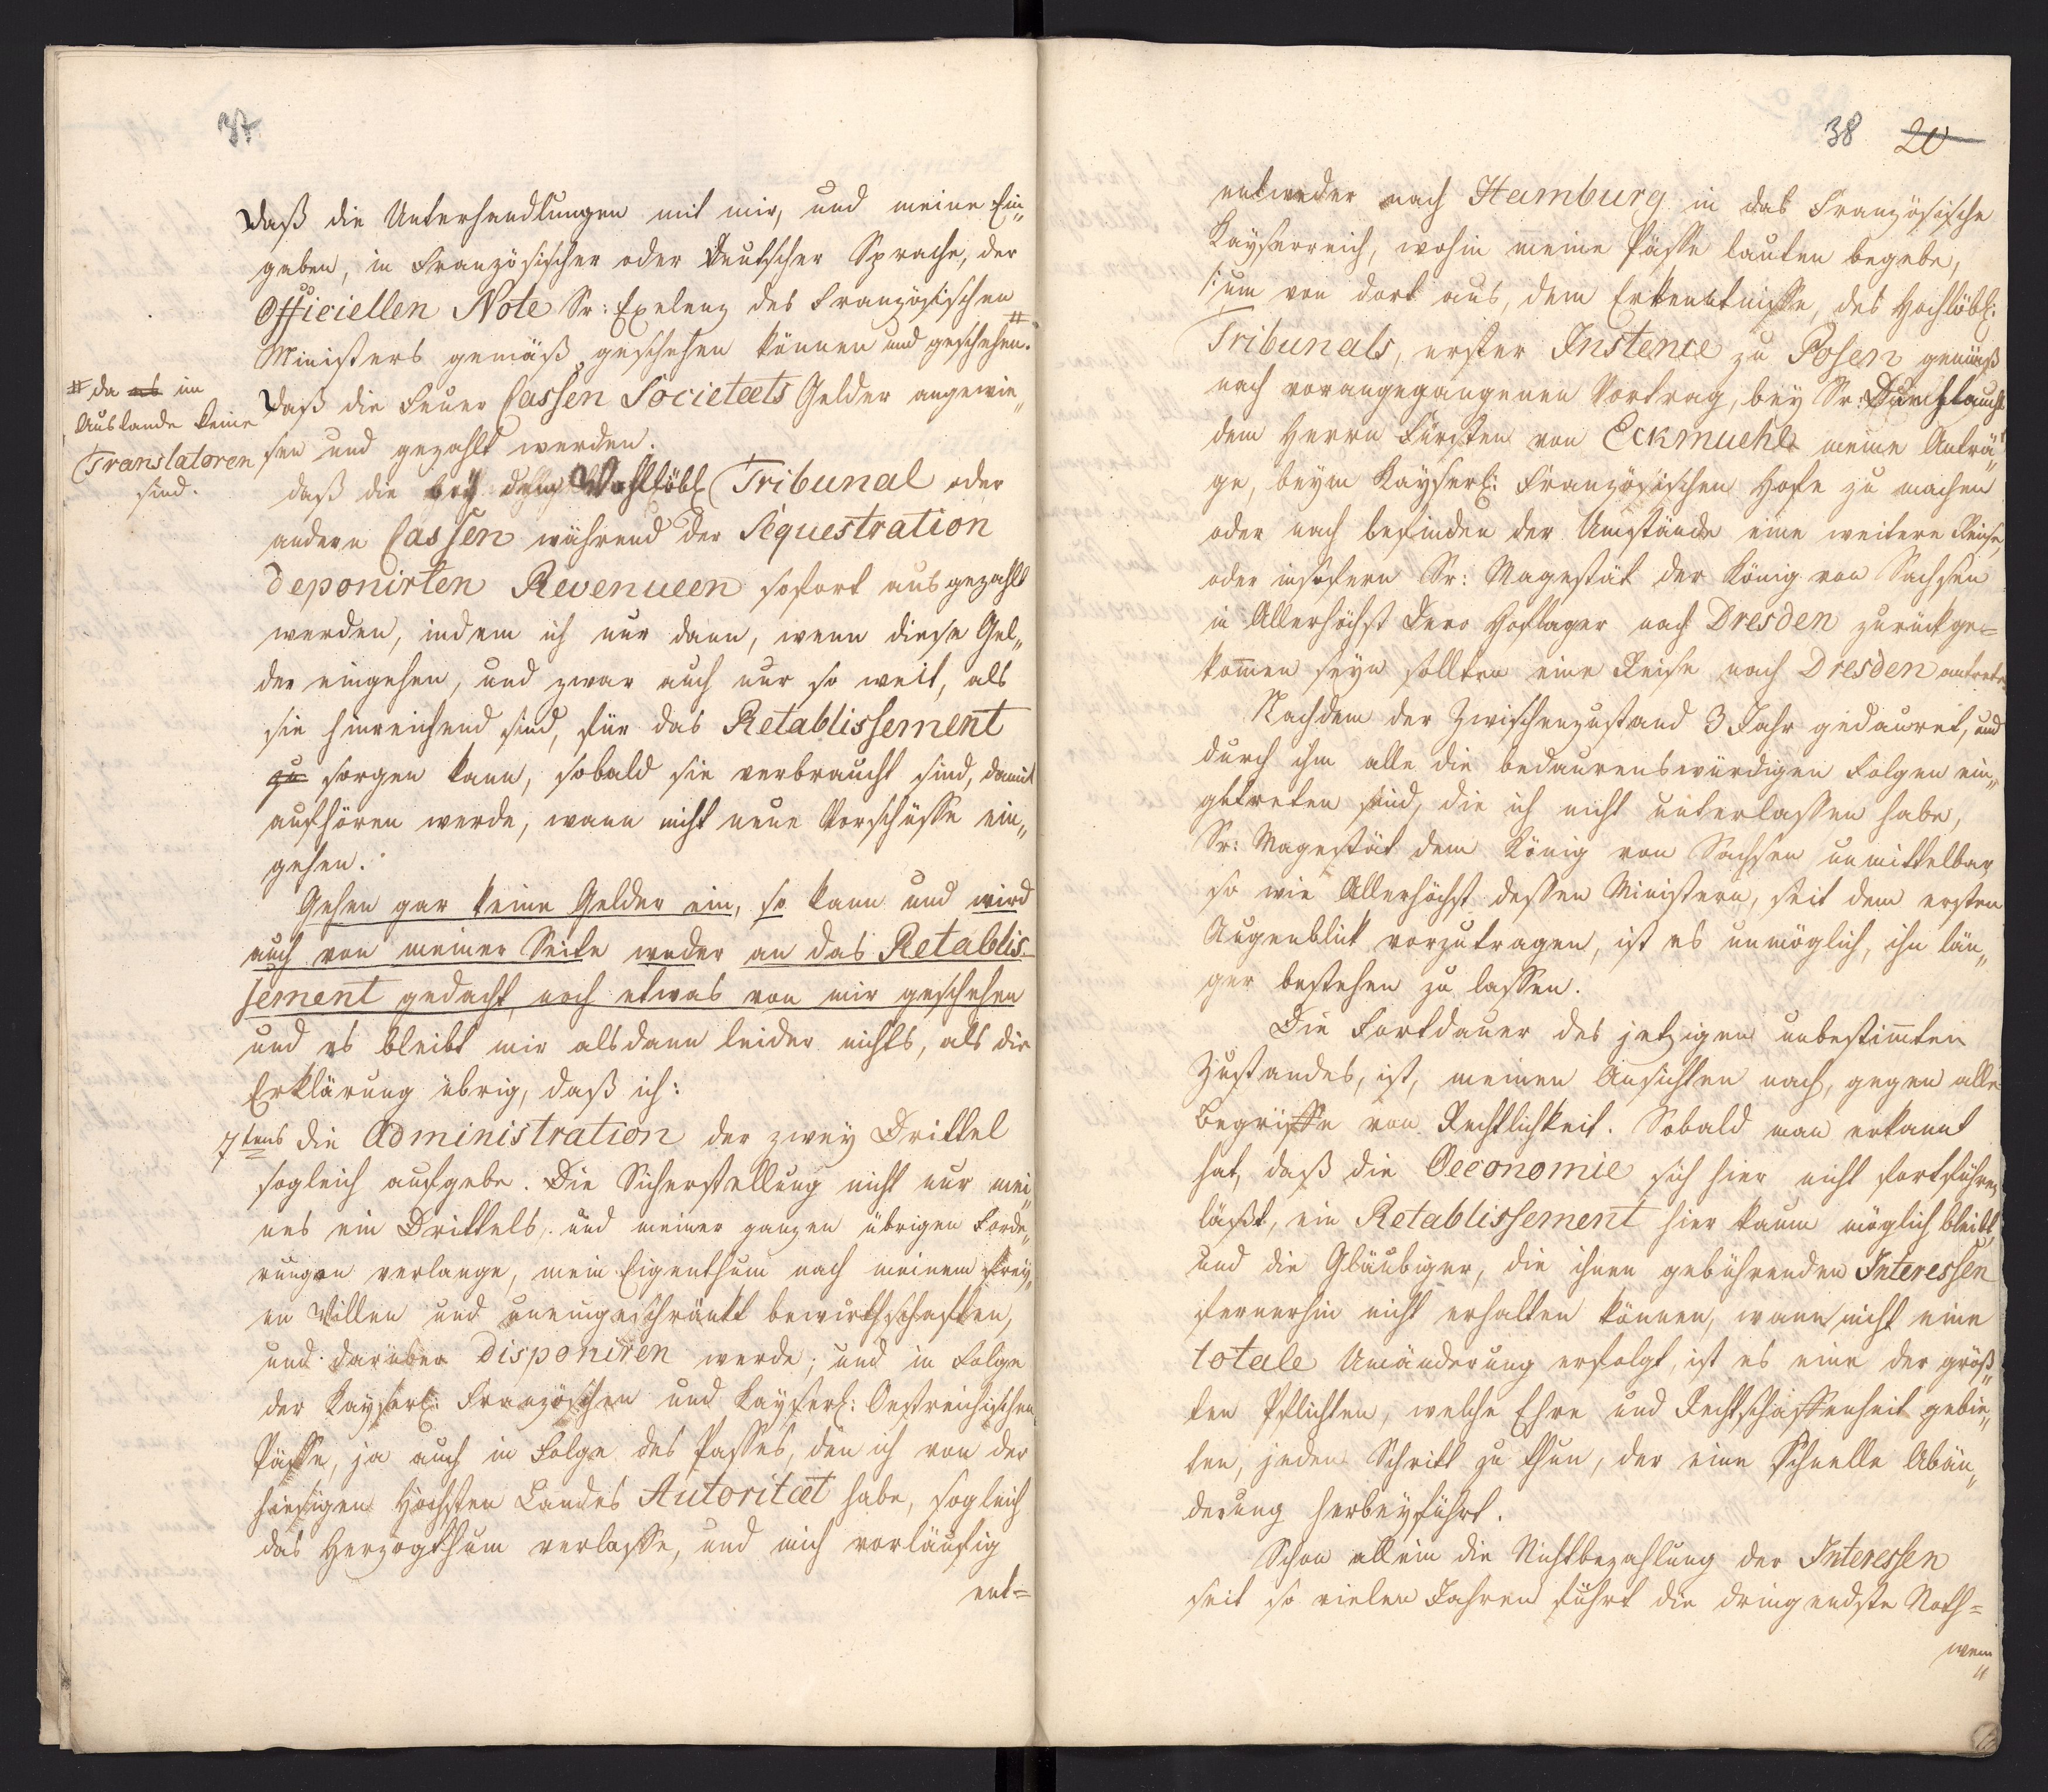 37.
Daß die Unterhandlungen mit mir, und meine Ein„
gaben, in Französischer oder Deutscher Sprache, der
Officiellen Note Sr: Exelenz des Französischen
Ministers gemäß geschehen können und geschehen. #
# da als im
Auslande keine
Translatoren
sind.
Daß die Feuer Cassen Societaets Gelder angewie„
sen und gezahlt werden.
daß die bey dem Wohllöbl Tribunal oder
andern Cassen während der Sequestration
deponirten Revenueen sofort ausgezahlt
werden, indem ich nur dann, wenn diese Gel„
der eingehen, und zwar auch nur so weit, als
sie hinreichend sind, für das Retablissement
zu sorgen kann, sobald sie verbraucht sind, damit
aufhören werde, wann nicht neue Vorschüsse ein„
gehen.
Gehen gar keine Gelder ein, so kann und wird
auch von meiner Seite weder an das Retablis-
sement gedacht, noch etwas von mir geschehen
und es bleibt mir alsdann leider nichts, als die
Erklärung übrig, daß ich:
7tens die Administration der zwey Drittel
sogleich aufgebe. Die Sicherstellung nicht nur mei„
nes ein Drittels, und meiner ganzen übrigen Forde„
rungen verlange, mein Eigenthum nach meinem frey„
en Willen und uneingeschränkt bewirthschaften,
und darüber disponiren werde; und in Folge
der Kayserl: Französchen und Kayserl: Oestreichischen
Pässe, ja auch in Folge des Passes, den ich von der
hiesigen Höchsten Landes Autoritaet habe, sogleich
das Herzogthum verlasse, und mich vorläufig
ent=
38 20
entweder nach Hamburg in das Französische
Kayserreich, wohin meine Pässe lauten begebe,
/: um von dort aus, dem Erkenntnisse, des Hochlöbl:
Tribunals, erster Instence zu Posen gemäß
nach vorangegangenen Vortrag, bey Sr: Durchlaucht
dem Herrn Fürsten von Eckmuehl meine Anträ„
ge, beym Kayserl: Französischen Hofe zu machen
oder nach befinden der Umstände eine weitere Reise,
oder insofern Sr: Magestät der König von Sachsen
in Allerhöchst Dero Hoflager nach Dresden zurückge=
kom̄en seyn sollten eine Reise nach Dresden antrete.
Nachdem der Zwischenzustand 3 Jahr gedauret, und
durch ihm alle die bedaurenswürdigen Folgen ein„
getreten sind, die ich nicht unterlassen habe,
Sr: Magestät dem König von Sachsen unmittelbar
so wie Allerhöchst dessen Ministern, seit dem ersten
Augenblick vorzutragen, ist es unmöglich, ihn län„
ger bestehen zu lassen.
Die Fortdauer des jetzigen unbestim̄ten
Zustandes, ist, meinen Ansichten nach, gegen alle
Begriffe von Rechtlichkeit. Sobald man erkannt
hat, daß die Oeconomie sich hier nicht fortführen
läßt, ein Retablissement hier kaum möglich bleibt,
und die Gläubiger, die ihnen gebührenden Interessen
fernerhin nicht erhalten können, wann nicht eine
totale Umänderung erfolgt, ist es eine der größ„
ten Pflichten, welche Ehre und Rechtschaffenheit gebie„
ten, jeden Schritt zu thun, der eine schnelle Abän„
derung herbeyführt.
Schon allein die Nichtbezahlung der Interessen
seit so vielen Jahren führt die dringendste Noth=
wen„